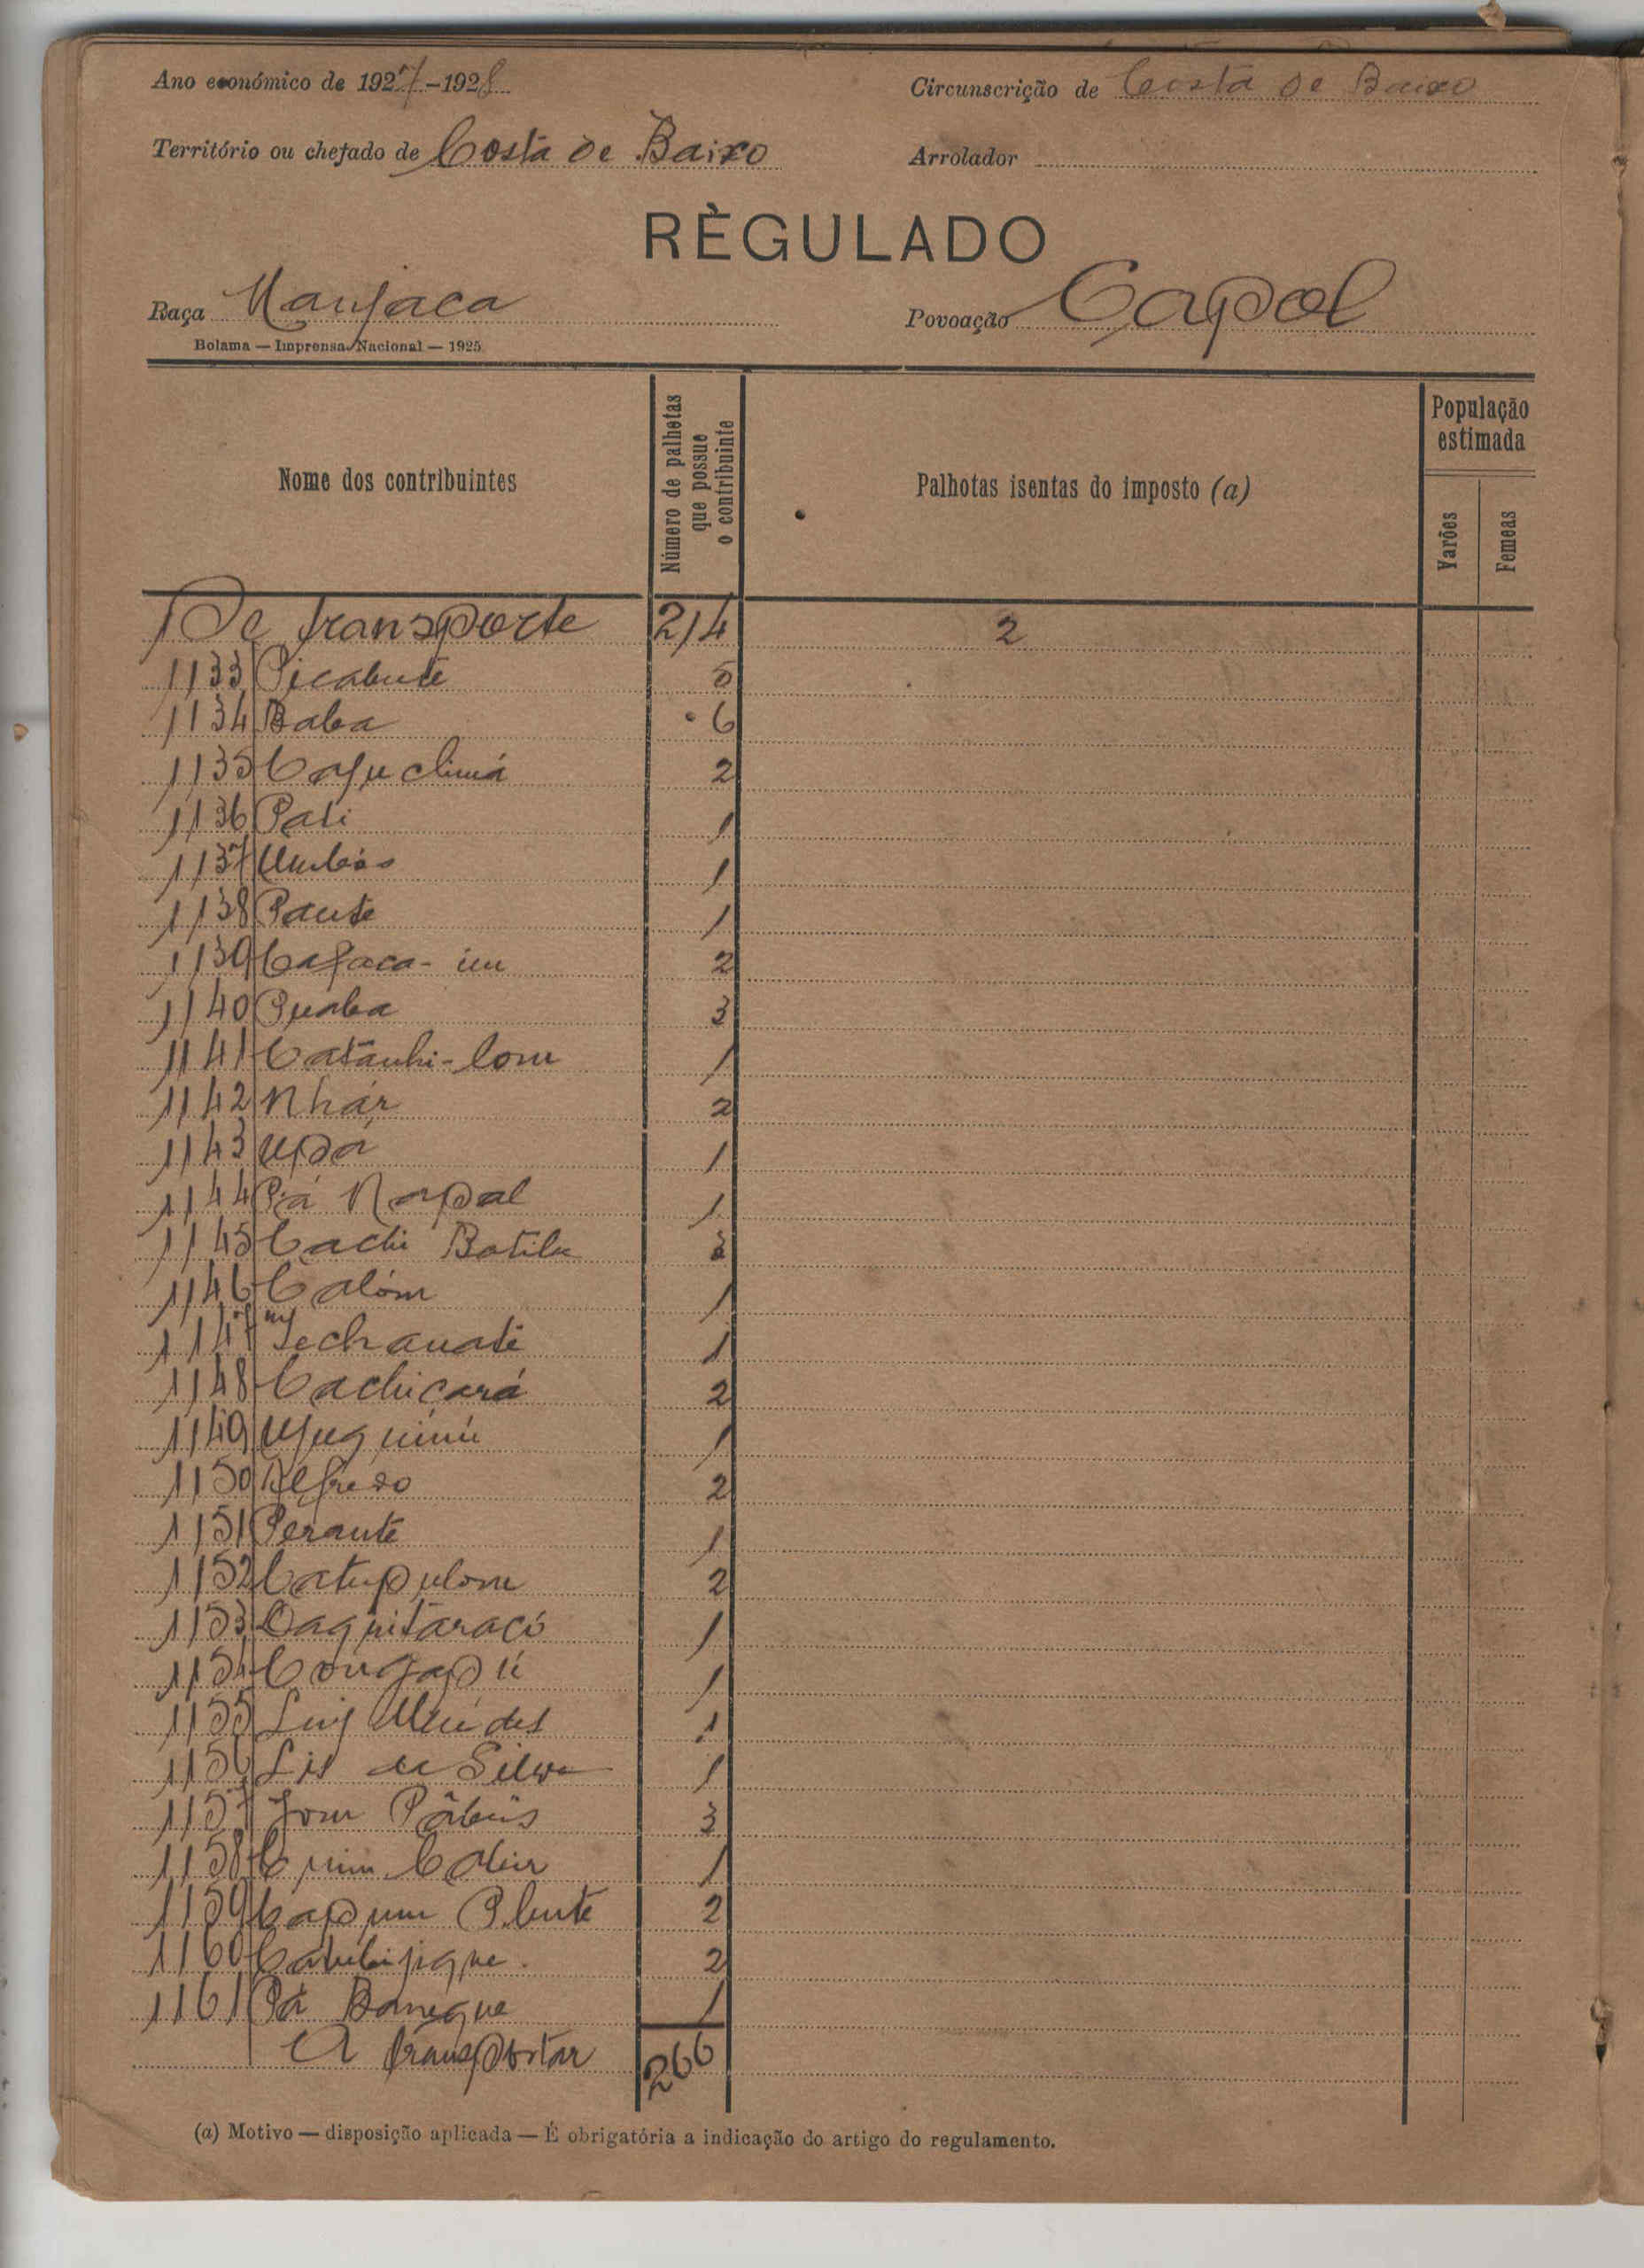 Ano económico de 1927-1928
Circunscrição de Costa de Baixo
Território ou chefado de Costa de Baixo
Arrolador
RÈGULADO
Raça Manjaca
Povoação Capol
Bolama — Imprensa Nacional — 1925
Nome dos contribuintes
Número de palhetas que possue o contribuinte
Palhotas isentas do imposto (a)
População estimada
Varões
Femeas
De transporte 214 2
1133 Picabute 5
1134 Baba 6
1135 2
1136 Pati 1
1137 1
1138 Paute 1
1139 2
1140 Quaba 3
1141 Catanhi-lom 1
1142 Nhár 2
1143 Upá 1
1144 Pá Napal 1
1145 Cachi Botila 3
1146 Calóm 1
1147 1
1148 Cachicará 2
1149 1
1150 Alfredo 2
1151 Perante 1
1152 Catupulom 2
1153 Caquitaracó 1
1154 1
1155 Luiz Mendes 1
1156 da Silva 1
1157 Jom 3
1158 1
1159 Capum 2
1160 2
1161 Pá Baneque 1
A transportar 266
(a) Motivo — disposição aplicada — É obrigatória a indicação do artigo do regulamento.